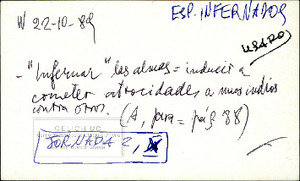 W 22-10-89
ESP. INFERNADOS
USARO
- "Infernar" las almas = inducir a
cometer atrocidades a unos indios
contra otros. (A, para = pág 88)
JORNADA 2,